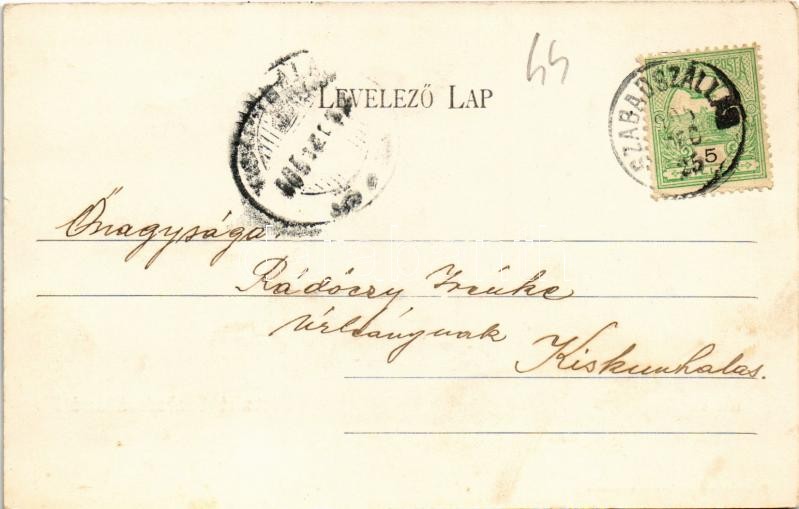 44
LEVELEZŐ LAP
POSTA
SZABADSZÁLLÁS
5
Őnagysága
Rádóczy Irénke
úrleánynak
Kiskunhalas.